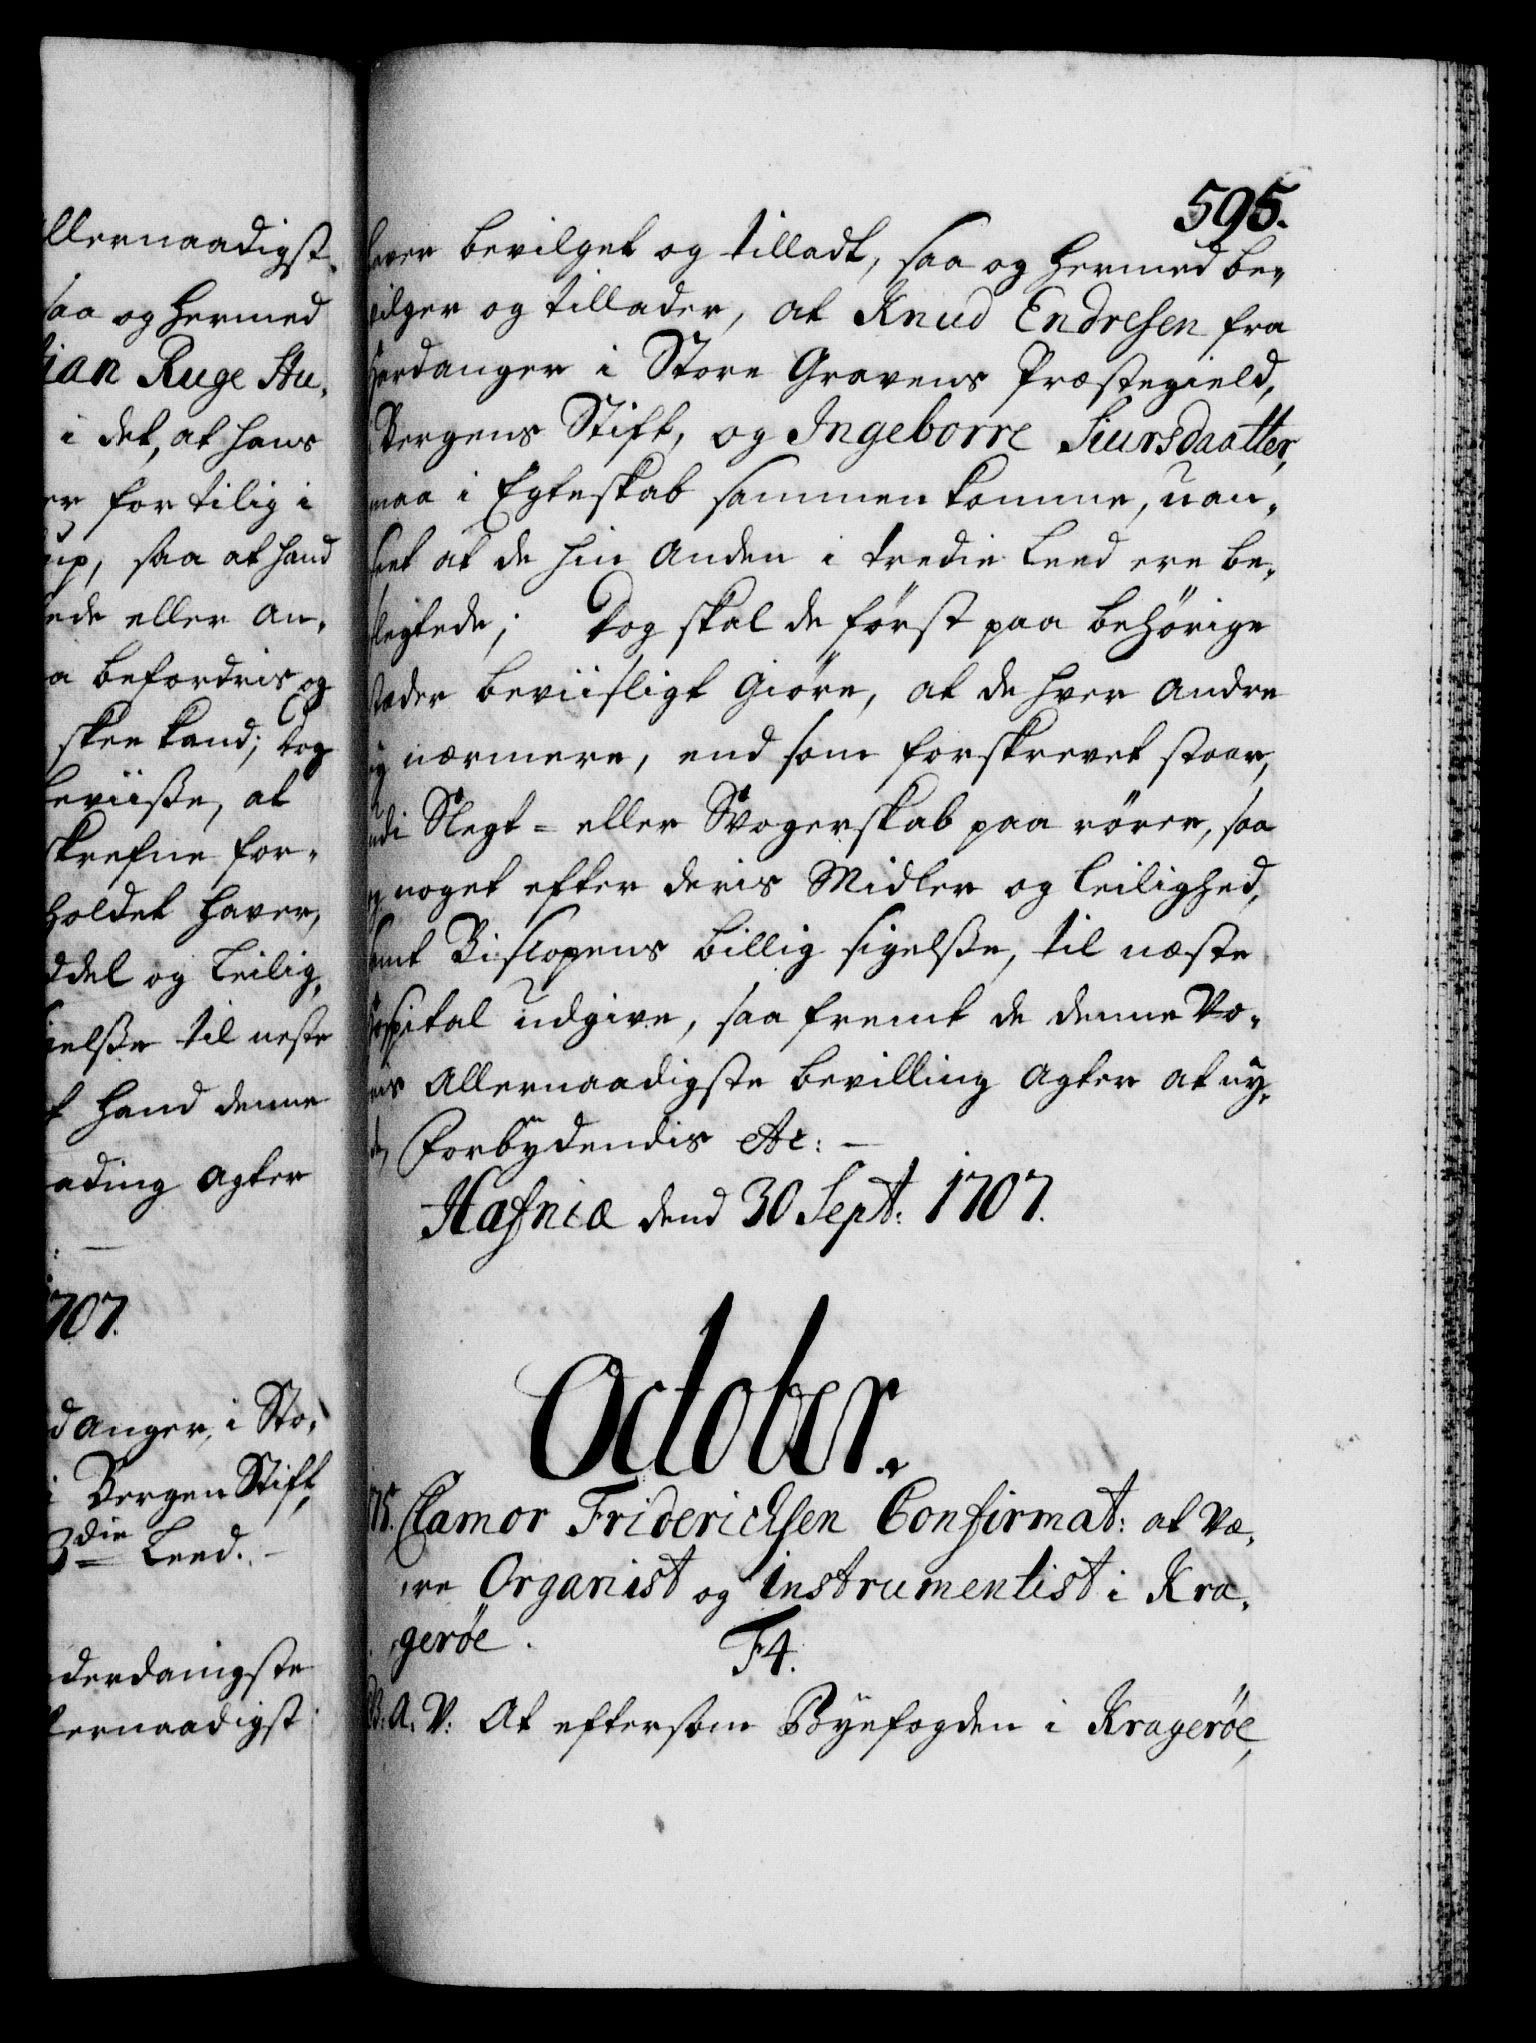 llernaadigst
saa og hermed
ian Ruge Stu¬
i det, at hans
er for tilig i
saa at hand
ede eller an¬
a befordris og
skee kand; Dog
beviisse, at
skrefne for¬
holdet haver,
ddel og Leilig¬
gelsse til neste
t hand denne
ading agter
707.
danger, i Sto¬
i Bergen Stift,
3die Leed.
derdanigste
lernaadigst
595.
haver bevilget og tilladt, saa og hermed be¬
vilger og tillader, at Knud Endresen fra
Hardanger i Store Gravens Præstegield,
Bergens Stift, og Ingeborre Siursdaatter,
maa i Egteskab sammen komme, uan¬
seet at de hin anden i tredie Leed ere be¬
slegtede; Dog skal de först paa behörige
stæder beviisligt giöre, at de hver andre
ey nærmere, end som forskrevet staar,
udi Slegt= eller Svogerskab paa rörer, saa
og noget efter deris Midler og Leilighed,
samt Biscopens billig sigelsse, til næste
Hospital udgive, saa fremt de denne Vo¬
ris allernaadigste bevilling agter at ny¬
de, Forbydendis etc: —
Hafniæ dend 30 Sept: 1707.
October.
175. Clamor Friderichsen Confirmat: at væ¬
re Organist og Instrumentist i Kra¬
geröe.
F4.
G. A. V: At eftersom Byefogden i Krageröe,